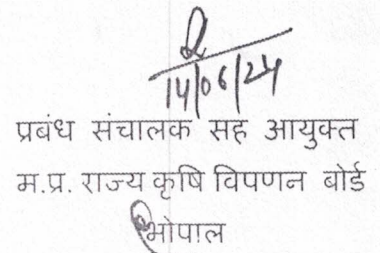 14/06/24
प्रबंध संचालक सह आयुक्त
म.प्र. राज्य कृषि विपणन बोर्ड
भोपाल